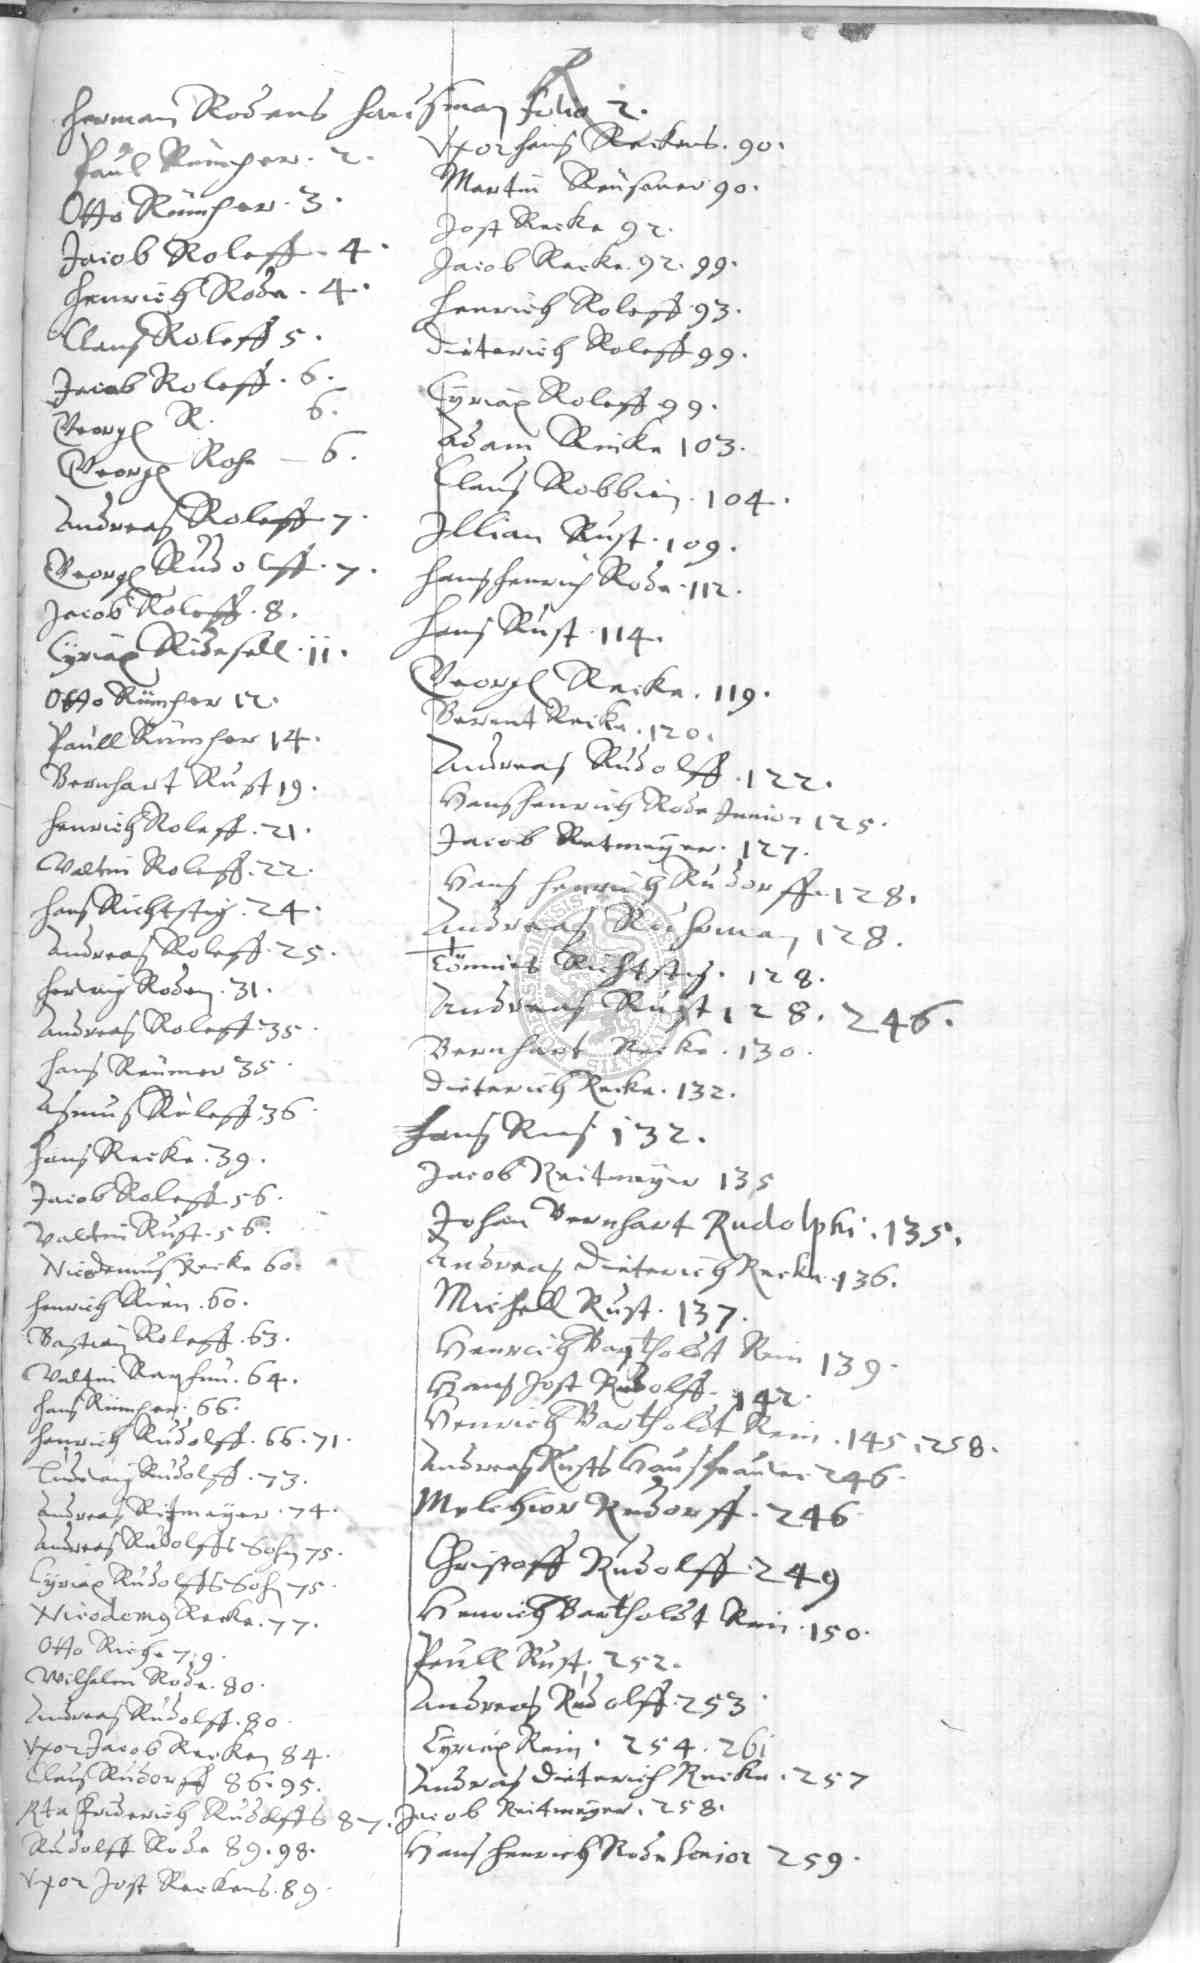 R
Herman Rodens Hausman folio 2.
Paul Rümper. 2.
Otto Rümper. 3.
Jacob Roleff. 4.
Henrich Rode. 4.
Claus Roleff 5.
Jacob Roleff. 6.
Georg R. 6.
Georg Rohe 6.
Andreas Roleff 7.
Georg Rudolff. 7.
Jacob Roleff. 8.
Cyriax Ridesell. 11.
Otto Rümper 12.
Paull Rümper 14.
Bernhart Rust 19.
Henrich Roleff. 21.
Valtin Roleff. 22.
Hans Richtstig. 24.
Andreas Roleff. 25.
Roden. 31.
Andreas Roleff. 35.
Hans Reumer 35.
Asmus Roleff. 36.
Hans Recke. 39.
Jacob Roleff. 56.
Valtin Rust. 56.
Nicodemus Recke 60.
Henrich Rien. 60.
Bastian Roleff. 63.
Valtin. 64.
Hans Rümper. 66.
Henrich Rudolff. 66. 71.
Ludwig Rudolff. 73.
Andreas Ritmeyer. 74.
Andreas Rudolffs Sohn 75.
Cyriax Rudolffs Sohn 75.
Nicodemg Recke. 77.
Otto Riche 79.
Wilhelm Rode. 80.
Andreas Rudolff. 80.
Vxor Jacob Recken 84.
Claus Rudorff 86. 95.
Rta Friderich Rudolffs 87.
Rudolff Rode 89. 98.
Vxor Jost Reckens. 89.
Vxor Hans Reckens. 90.
Martin 90.
Jost Recke 92.
Jacob Recke. 92. 99.
Henrich Roleff. 93.
Dieterich Roleff 99.
Cyriax Roleff 99.
Adam Reicke 103.
Claus Robbien. 104.
Illian Rust. 109.
Hans Henrich Rode. 112.
Hans Rust. 114.
Georg Recke. 119.
Berent Recke. 120.
Andreas Rudolff. 122.
Hans Henrich Rode Junior 125.
Jacob Retmeyer. 127.
Hans Henrich Rudorff. 128.
Andreas 128.
Tönnies Richtstig. 128.
Andreas Rust 128. 246.
Bernhart Recke. 130.
Dieterich Recke. 132.
Hans 132.
Jacob Reitmeyer 135
Johan Bernhart Rudolphi. 135.
Andreas Dieterich Recke. 136.
Michell Rust. 137.
Henrich Bartholdt Rein 139.
Hans Jost Rudolff. 142.
Henrich Bartholdt Rein. 145. 258.
Andreas Rusts Hausfrauwe 246.
Melchior Rudorff. 246.
Christoff Rudolff. 249
Henrich Bartholdt Rein. 150.
Paull Rust. 252.
Andreas Rudolff. 253.
Cyriax Rein. 254. 261
Andreas Dieterich Recke. 257
Jacob Reitmeyer. 258.
Hans Henrich Rode Senior 259.